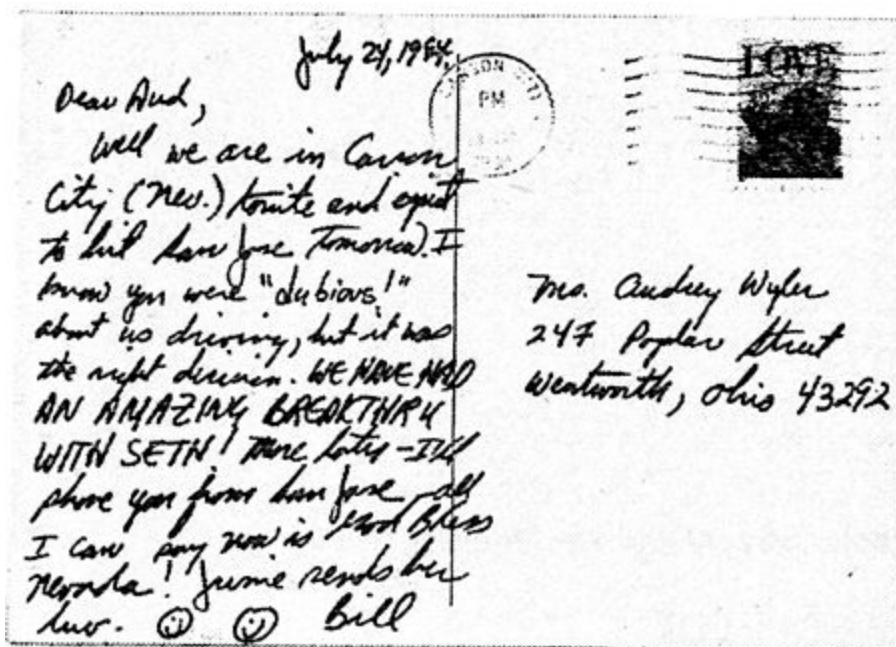 July 24, 1994.
Dear Aud,
Well we are in Carson
City (Nev.) tonite and expect
to hit San Jose tomorrow. I
know you were "dubious!"
about us driving, but it was
the right decision. WE HAVE HAD
AN AMAZING BREAKTHRU
WITH SETH! More later – I'll
phone you from San Jose, all
I can say now is God Bless
Nevada! Junie sends her
luv. ☺ ☺ Bill
CARSON CITY
PM
LOVE
Ms. Audrey Wyler
247 Poplar Street
Wentworth, Ohio 43292